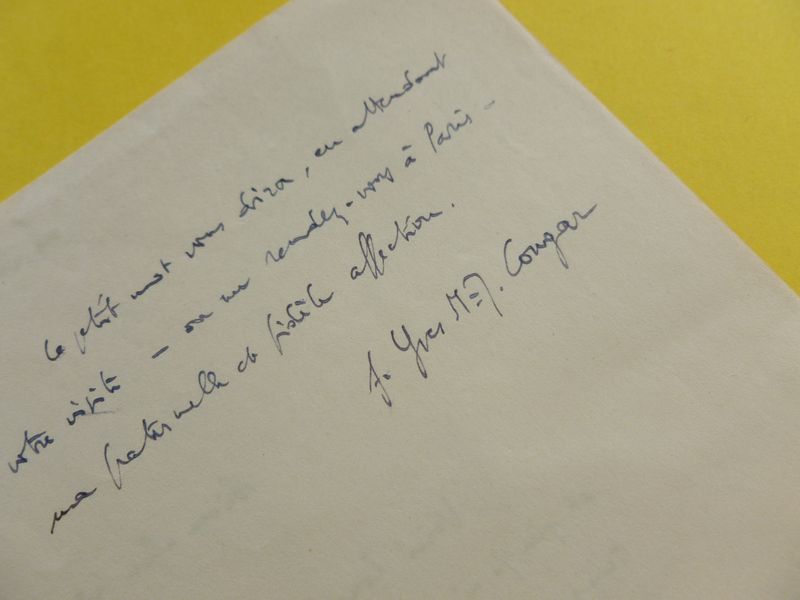 Ce petit mot vous dira, en attendant
votre visite – ou un rendez-vous à Paris –
ma fraternelle et fidèle affection.
f. Yves M-J. Congar